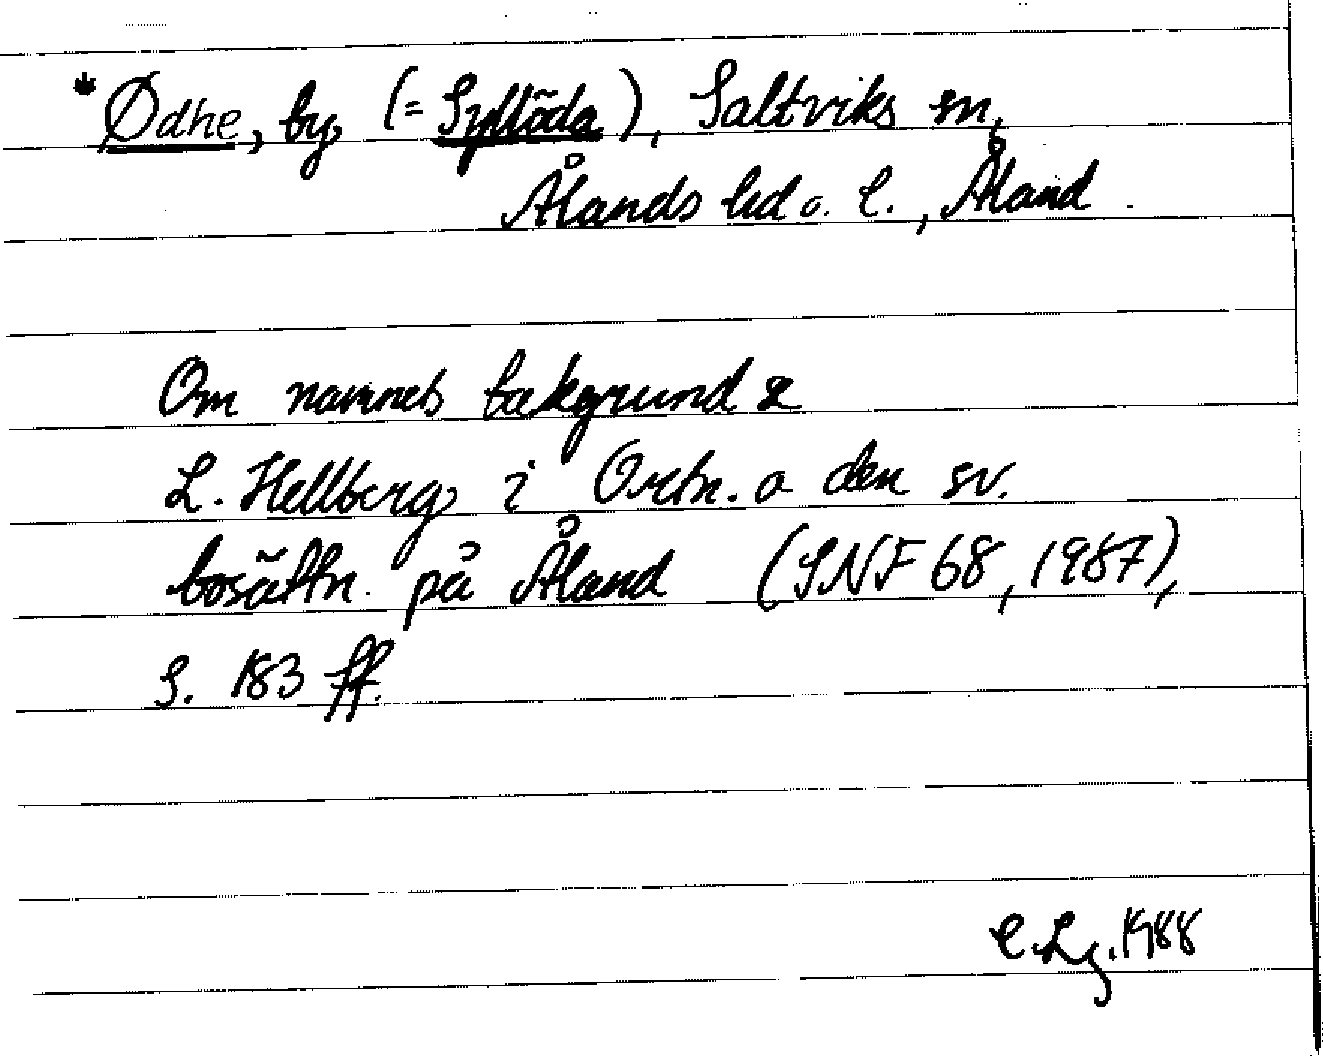 *Ødhe, by, (= Syllöda), Saltviks sn,
Ålands hd o. l., Åland.
Om namnets bakgrund se
L. Hellberg i Ortn. o den sv.
bosättn. på Åland (SNF 68, 1987),
s. 183 ff.
C. Lg. 1988